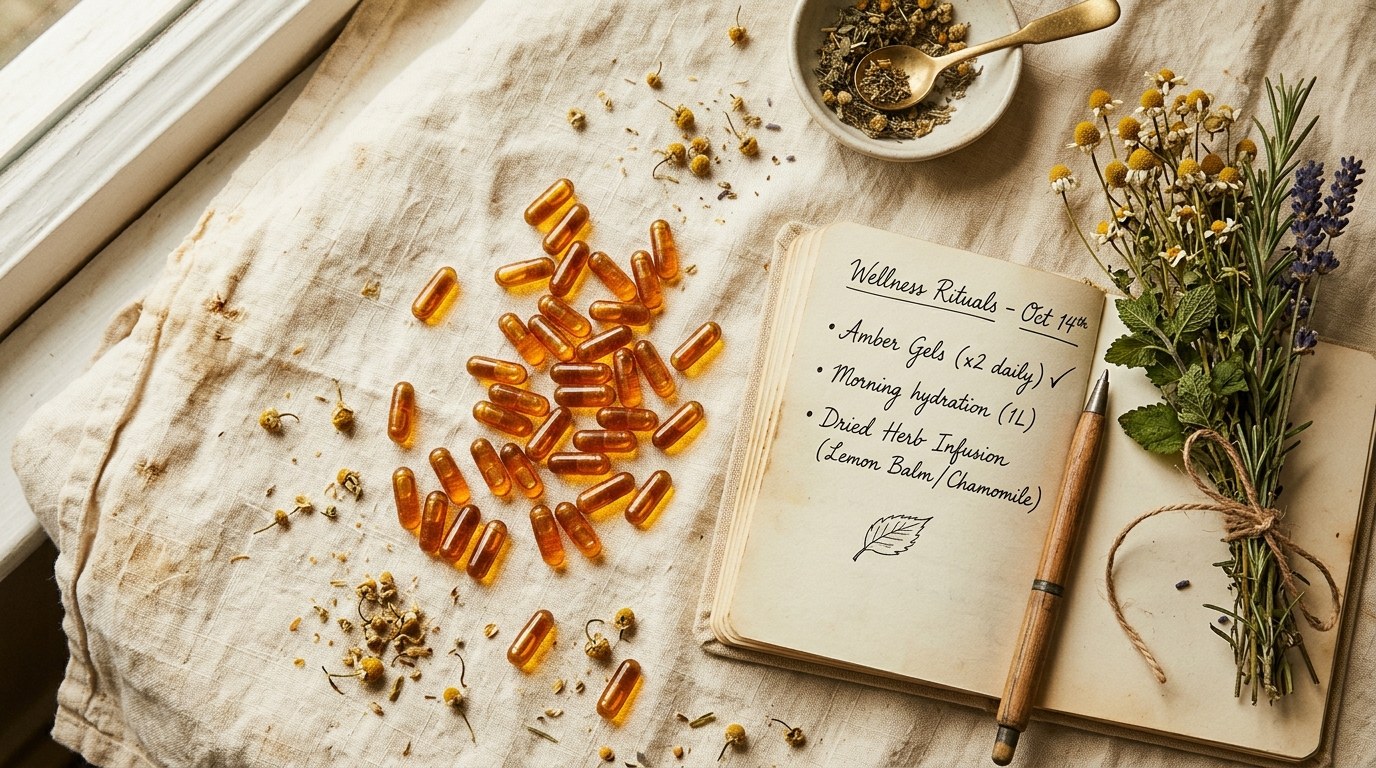 Wellness Rituals - Oct 14th
• Amber Gels (x2 daily) ✓
• Morning hydration (1L)
• Dried Herb Infusion
(Lemon Balm/Chamomile)